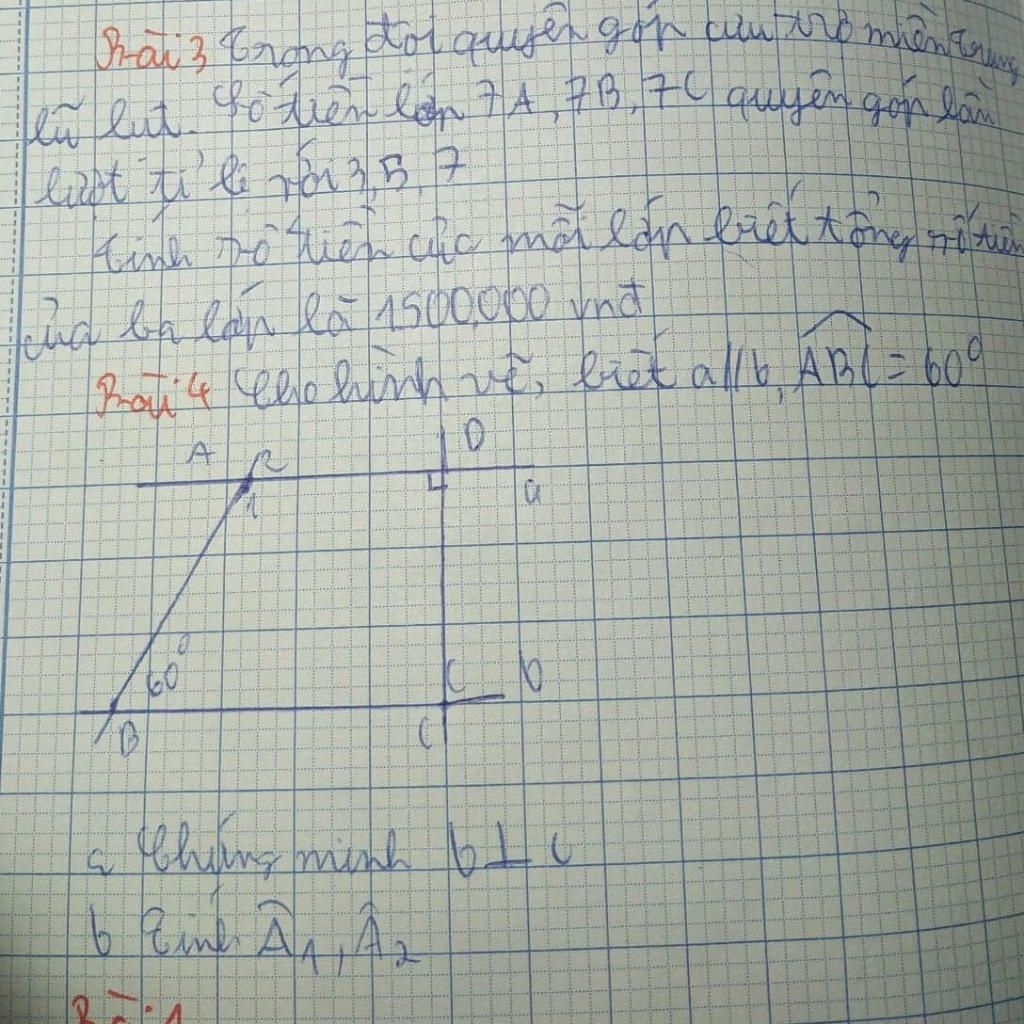 Bài 3 Trong đợt quyên góp cứu trợ miền trung
lũ lụt. Số tiền lớp 7A, 7B, 7C quyên góp lần
lượt tỉ lệ với 3, 5, 7
Tính số tiền của mỗi lớp biết tổng số tiền
của ba lớp là 1500,000 vnđ
Bài 4 Cho hình vẽ, biết a // b, ABC = 60°
A 2 D
1 a
60°
C b
B C
a Chứng minh b ⊥ c
b Tính Â1, Â2